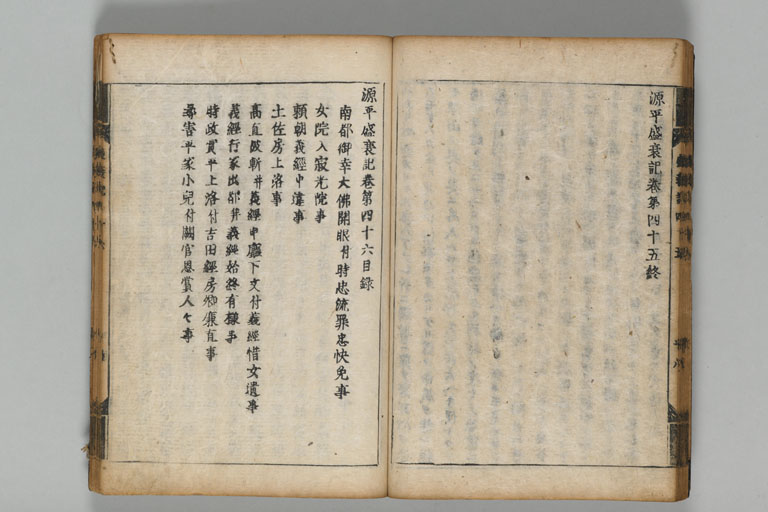 源平盛衰記卷第四十五終
源平盛衰記卷第四十六目録
南都御幸大佛開眼付時忠流罪忠快免事
女院入寂光院事
頼朝義經中違事
土佐房上洛事
高直被斬并義經申廳下文付義經惜女遺事
義經行家出都并義經始終有様事
時政實平上洛付吉田經房卿廉直事
尋害平家小兒付闕官恩賞人々事